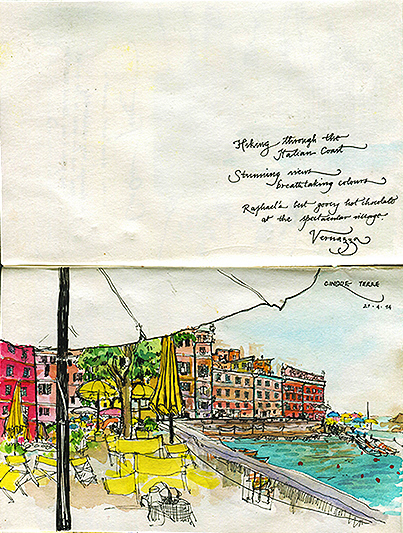 Hiking through the
Italian Coast
Stunning views
breathtaking colours
Raphael's best gooey hot chocolate
at the spectacular village.
Vernazza
CINQUE TERRE
21-4-14